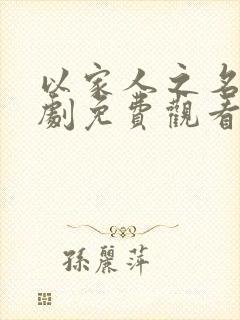 以家人之名
劇免費觀看
孫麗萍